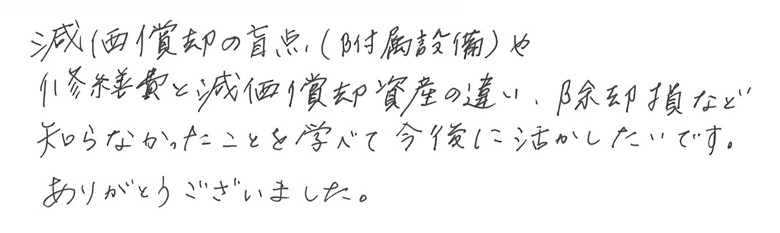 減価償却の盲点(附属設備)や
修繕費と減価償却資産の違い、除却損など
知らなかったことを学べて今後に活かしたいです。
ありがとうございました。